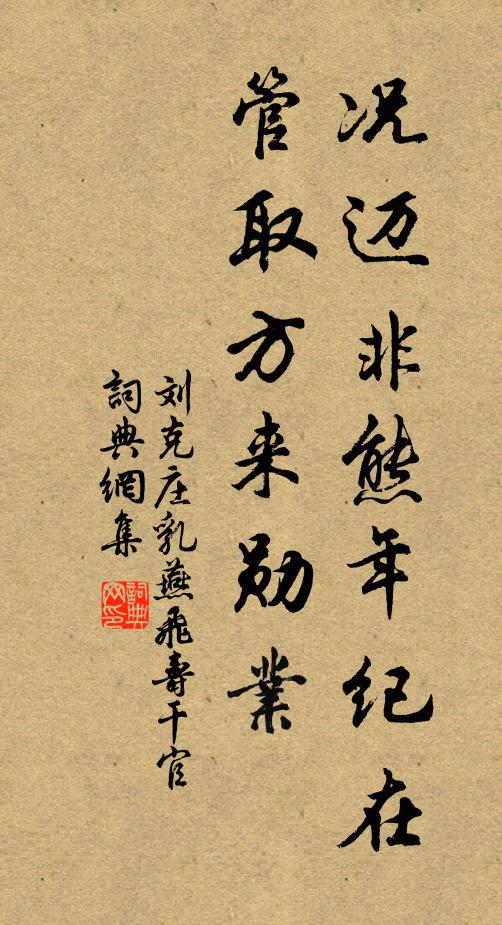 况迈非熊年纪在
管取方来勋業
刘克庄乳燕飛壽干官
詞典網集
詞典
网印